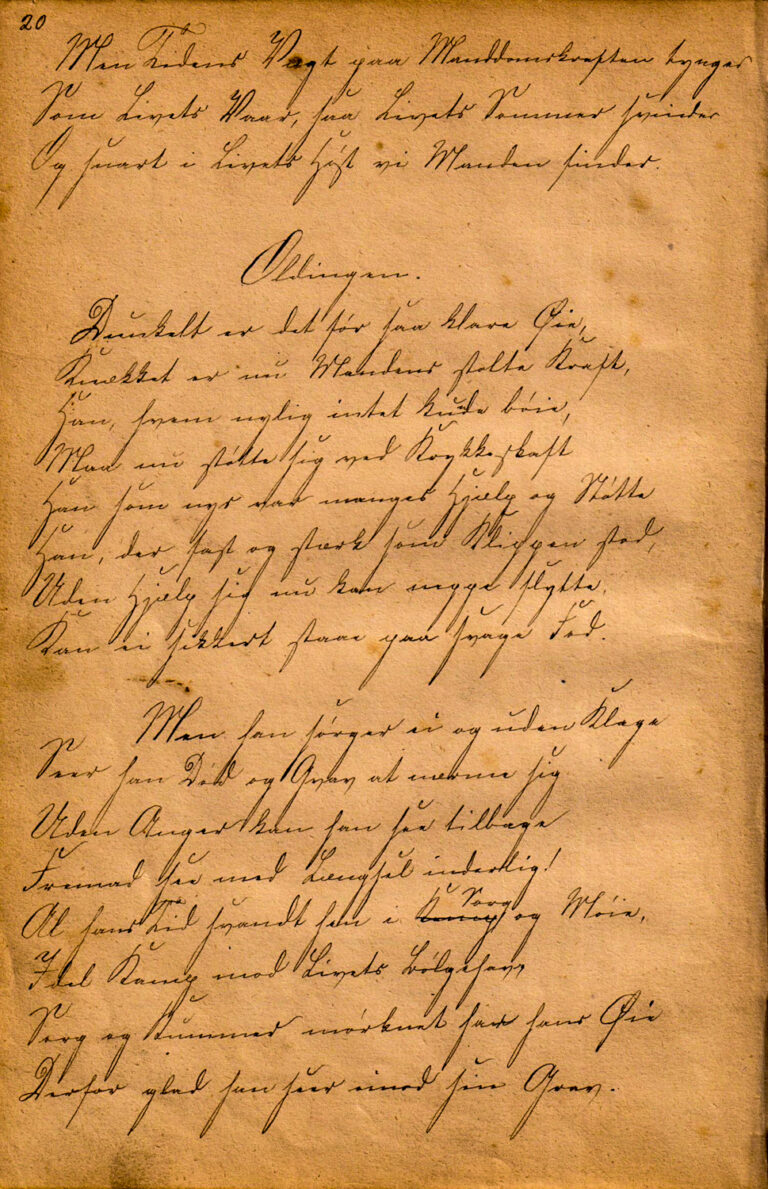 20
Men Tidens Vægt paa Manddomskraften tynger
Som Livets Vaar, saa Livets Sommer svinder
Og snart i Livets Høst vi Manden finder.
Oldingen.
Dunkelt er det før saa klare Øie,
Knækket er nu Mandens stolte Kraft,
Han, hvem nylig intet kude bøie,
Maa nu støtte sig ved Krykkeskaft
Han som nys var manges Hjælp og Støtte
Han, der fast og stærk som Klippen stod,
Uden Hjælp sig nu kan neppe flytte,
Kan ei sikkert staae paa svage Fod.
Men han sørger ei og uden Klage
Seer han Død og Grav at nærme sig
Uden Anger kan han see tilbage
Fremad see med Længsel inderlig!
Al hans Tid svandt hen i Kamp Sorg og Møie,
Idel Kamp mod Livets Bølgehav,
Sorg og Kummer mørknet har hans Øie
Derfor glad han seer imod sin Grav.